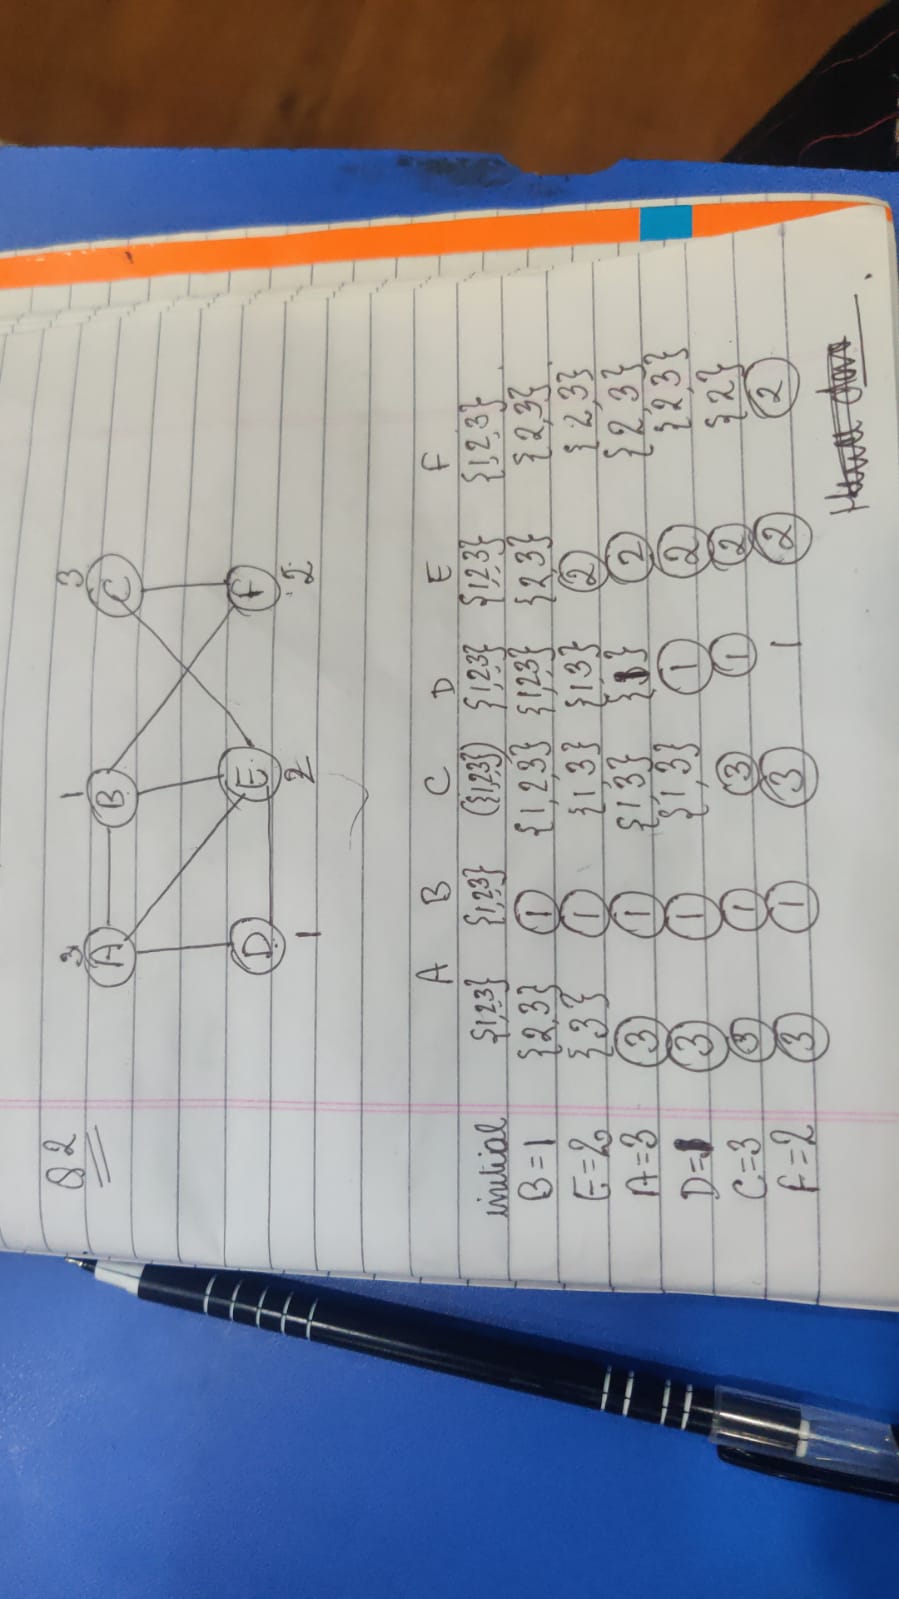 Q2
3 1 3
A B C
D E F
1 2 2
A B C D E F
initial {1,2,3} {1,2,3} ({1,2,3}) {1,2,3} {1,2,3} {1,2,3}
B=1 {2,3} 1 {1,2,3} {1,2,3} {2,3} {2,3}
E=2 {3} 1 {1,3} {1,3} 2 {2,3}
A=3 3 1 {1,3} {1} 2 {2,3}
D=1 3 1 {1,3} 1 2 {2,3}
C=3 3 1 3 1 2 {2}
F=2 3 1 3 1 2 2